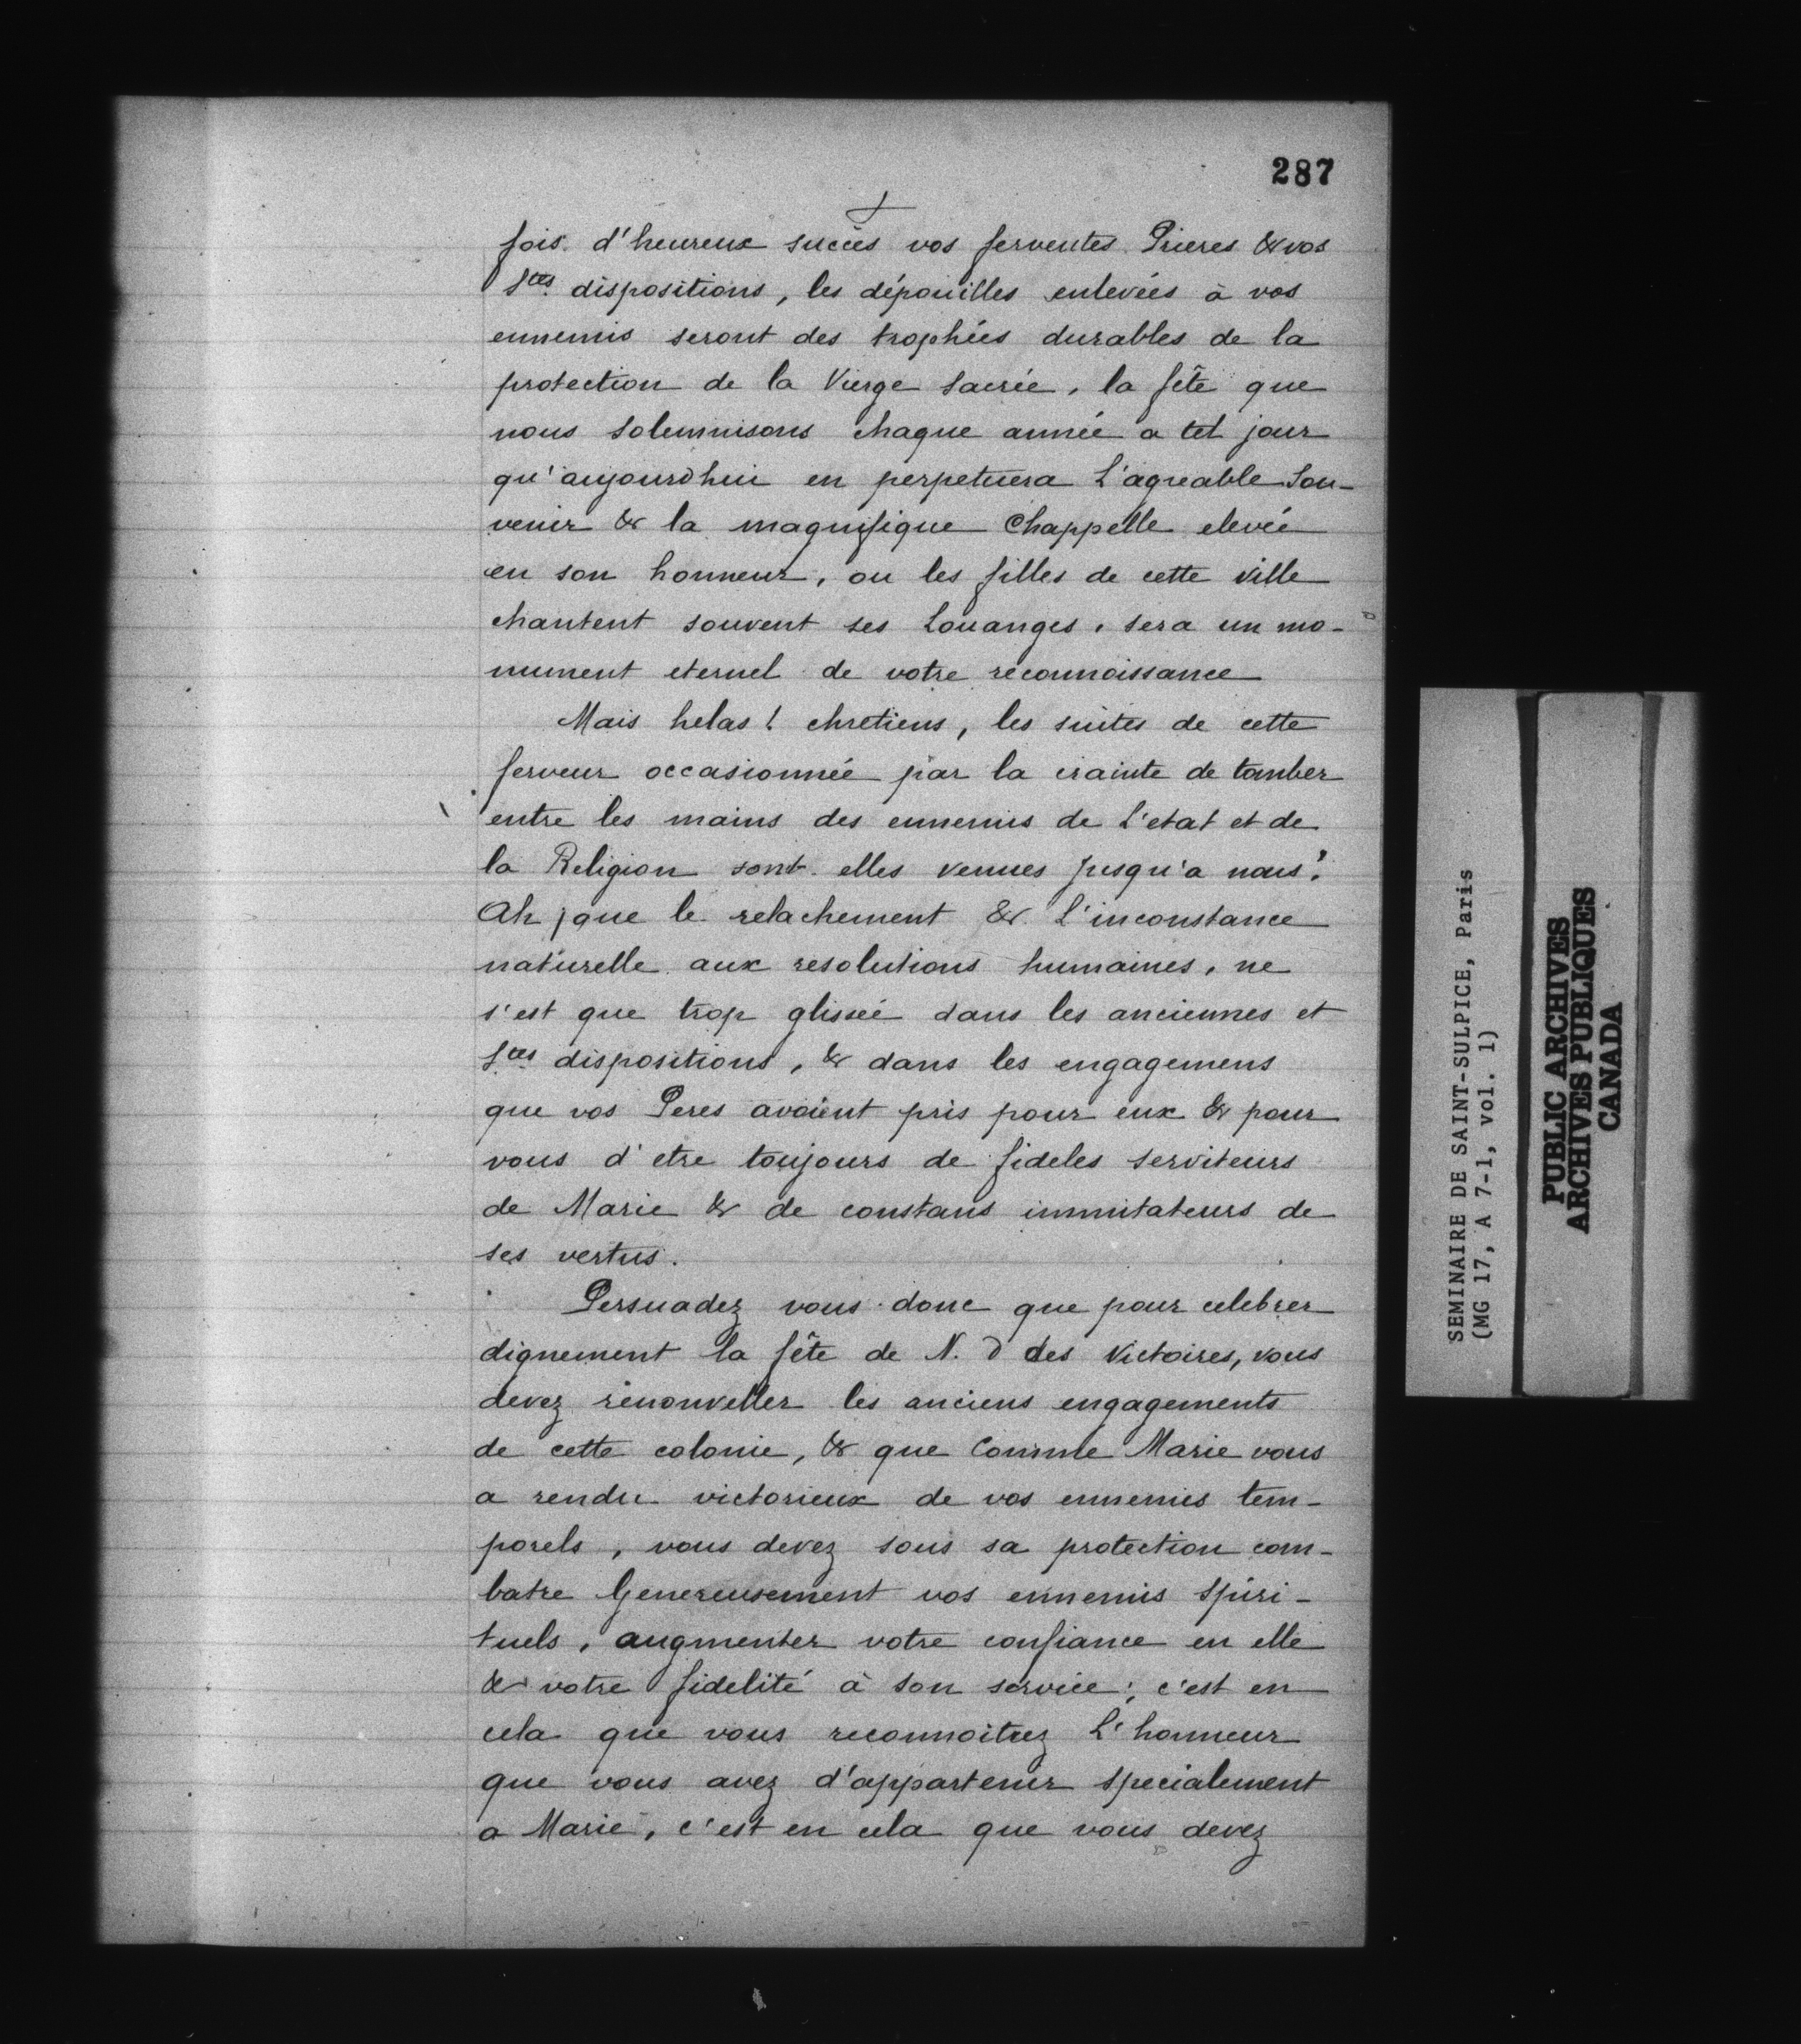 287
fois d'heureux succès vos ferventes Prieres & vos
Stes dispositions, les dépouilles enlevées à vos
ennemis seront des trophées durables de la
protection de la Vierge Sacrée, la fête que
nous Solemnisons chaque année a tel jour
qu'aujourdhui en perpetuera L'agreable Sou-
venir & la magnifique Chappelle elevée
en son honneur, ou les filles de cette ville
chantent souvent ses Louanges, sera un mo-
nument eternel de votre reconnoissance
Mais helas! chretiens, les suites de cette
ferveur occasionnée par la crainte de tomber
entre les mains des ennemis de L'etat et de
la Religion sont elles venues Jusqu'a nous?
Ah que le relachement & L'inconstance
naturelle aux resolutions humaines, ne
s'est que trop glissée dans les anciennes et
Stes dispositions, & dans les engagemens
que vos Peres avoient pris pour eux & pour
vous d'etre toujours de fideles Serviteurs
de Marie & de constans immitateurs de
ses vertus.
Persuadez vous donc que pour celebrer
dignement la fête de N. D des Victoires, vous
devez renouveller les anciens engagements
de cette colonie, & que Comme Marie vous
a rendu victorieux de vos ennemis tem-
porels, vous devez sous sa protection com-
batre Genereusement vos ennemis Spiri-
tuels, augmenter votre confiance en elle
& votre fidelité à Son service; c'est en
cela que vous reconnoitrez L'honneur
que vous avez d'appartenir Specialement
a Marie, c'est en cela que vous devez
SEMINAIRE DE SAINT-SULPICE, Paris
(MG 17, A 7-1, vol. 1)
PUBLIC ARCHIVES
ARCHIVES PUBLIQUES
CANADA